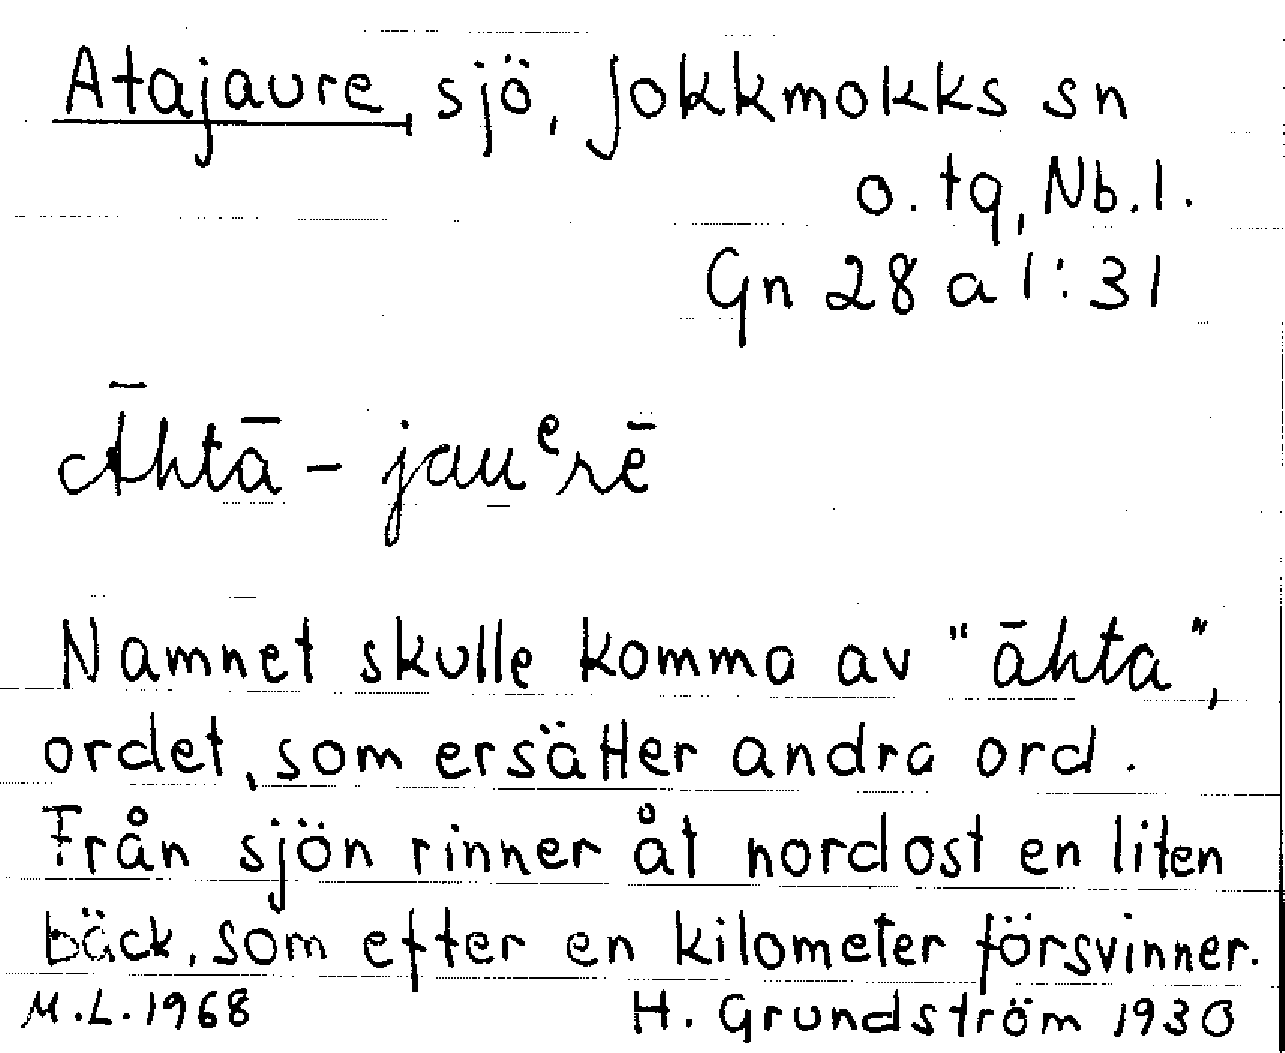 Atajaure, sjö, Jokkmokks sn
o. tg, Nb. l.
Gn 28 a 1:31
Āhtā-jauᵉrē
Namnet skulle komma av "āhta",
ordet, som ersätter andra ord.
Från sjön rinner åt nordost en liten
bäck, som efter en kilometer försvinner.
M.L. 1968 H. Grundström 1930